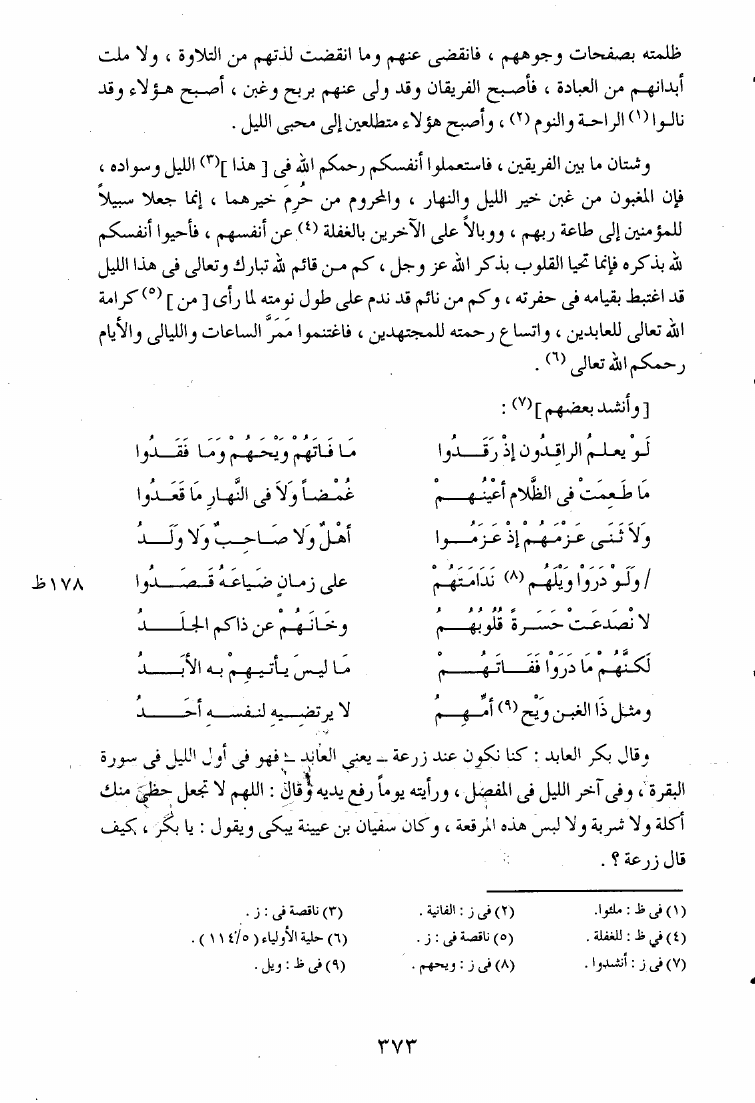 ظلمته بصفحات وجوههم ، فانقضى عنهم وما انقضت لذتهم من التلاوة ، ولا ملت
أبدانهم من العبادة ، فأصبح الفريقان وقد ولى عنهم بربح وغبن ، أصبح هؤلاء وقد
نالوا (١) الراحة والنوم (٢) ، وأصبح هؤلاء متطلعين إلى محبى الليل .
وشتان ما بين الفريقين ، فاستعملوا أنفسكم رحمكم الله فى [ هذا ] (٣) الليل وسواده ،
فإن المغبون من غبن خير الليل والنهار ، والمحروم من حُرِمَ خيرهما ، إنما جعلا سبيلاً
للمؤمنين إلى طاعة ربهم ، ووبالاً على الآخرين بالغفلة (٤) عن أنفسهم ، فأحيوا أنفسكم
لله بذكره فإنما تحيا القلوب بذكر الله عز وجل ، كم من قائم لله تبارك وتعالى فى هذا الليل
قد اغتبط بقيامه فى حفرته ، وكم من نائم قد ندم على طول نومته لما رأى [ من ] (٥) كرامة
الله تعالى للعابدين ، واتساع رحمته للمجتهدين ، فاغتنموا مَمَرَّ الساعات والليالى والأيام
رحمكم الله تعالى (٦) .
[ وأنشد بعضهم ] (٧) :
لَوْ يعلمُ الراقِدُون إذْ رَقَدُوا مَا فَاتَهُمْ وَيْحَهُمْ وَمَا فَقَدُوا
مَا طَعِمَتْ فى الظَّلام أعْيُنُهمْ غُمْضاً وَلاَ فى النَّهارِ مَا قَعَدُوا
وَلاَ ثَنَى عَزْمَهُمْ إذْ عَزَمُوا أهْلٌ وَلاَ صَاحِبٌ وَلا وَلَدُ
/ وَلَوْ دَرَوْا وَيْلَهُم (٨) نَدَامَتَهُمْ على زمانٍ ضَيَاعَهُ قَصَدُوا
١٧٨ظ
لاَ نْصَدَعَتْ حَسَرةً قُلُوبُهُمُ وخَانَهُمْ عن ذاكم الجلَدُ
لَكنَّهُم مَا دَرَوْا فَفَاتَهُمْ مَا ليسَ يأتيهِمْ به الأبَدُ
ومثل ذَا الغبن وَيْح (٩) أمِّهِمُ لا يرتضيه لنفسه أحَدُ
وقال بكر العابد : كنا نكون عند زرعة - يعنى العابد - فهو فى أول الليل فى سورة
البقرة ، وفى آخر الليل فى المفصل ، ورأيته يوماً رفع يديه وقال : اللهم لا تجعل حظى منك
أكلة ولا شربة ولا لبس هذه المرقعة ، وكان سفيان بن عيينة يبكى ويقول : يا بكر ، كيف
قال زرعة ؟ .
(١) فى ظ : ملئوا. (٢) فى ز : الفانية . (٣) ناقصة فى : ز .
(٤) في ظ : للغفلة . (٥) ناقصة فى : ز . (٦) حلية الأولياء (٥/ ١١٤) .
(٧) فى ز : أنشدوا . (٨) فى ز : ويحهم . (٩) فى ظ : ويل .
٣٧٣